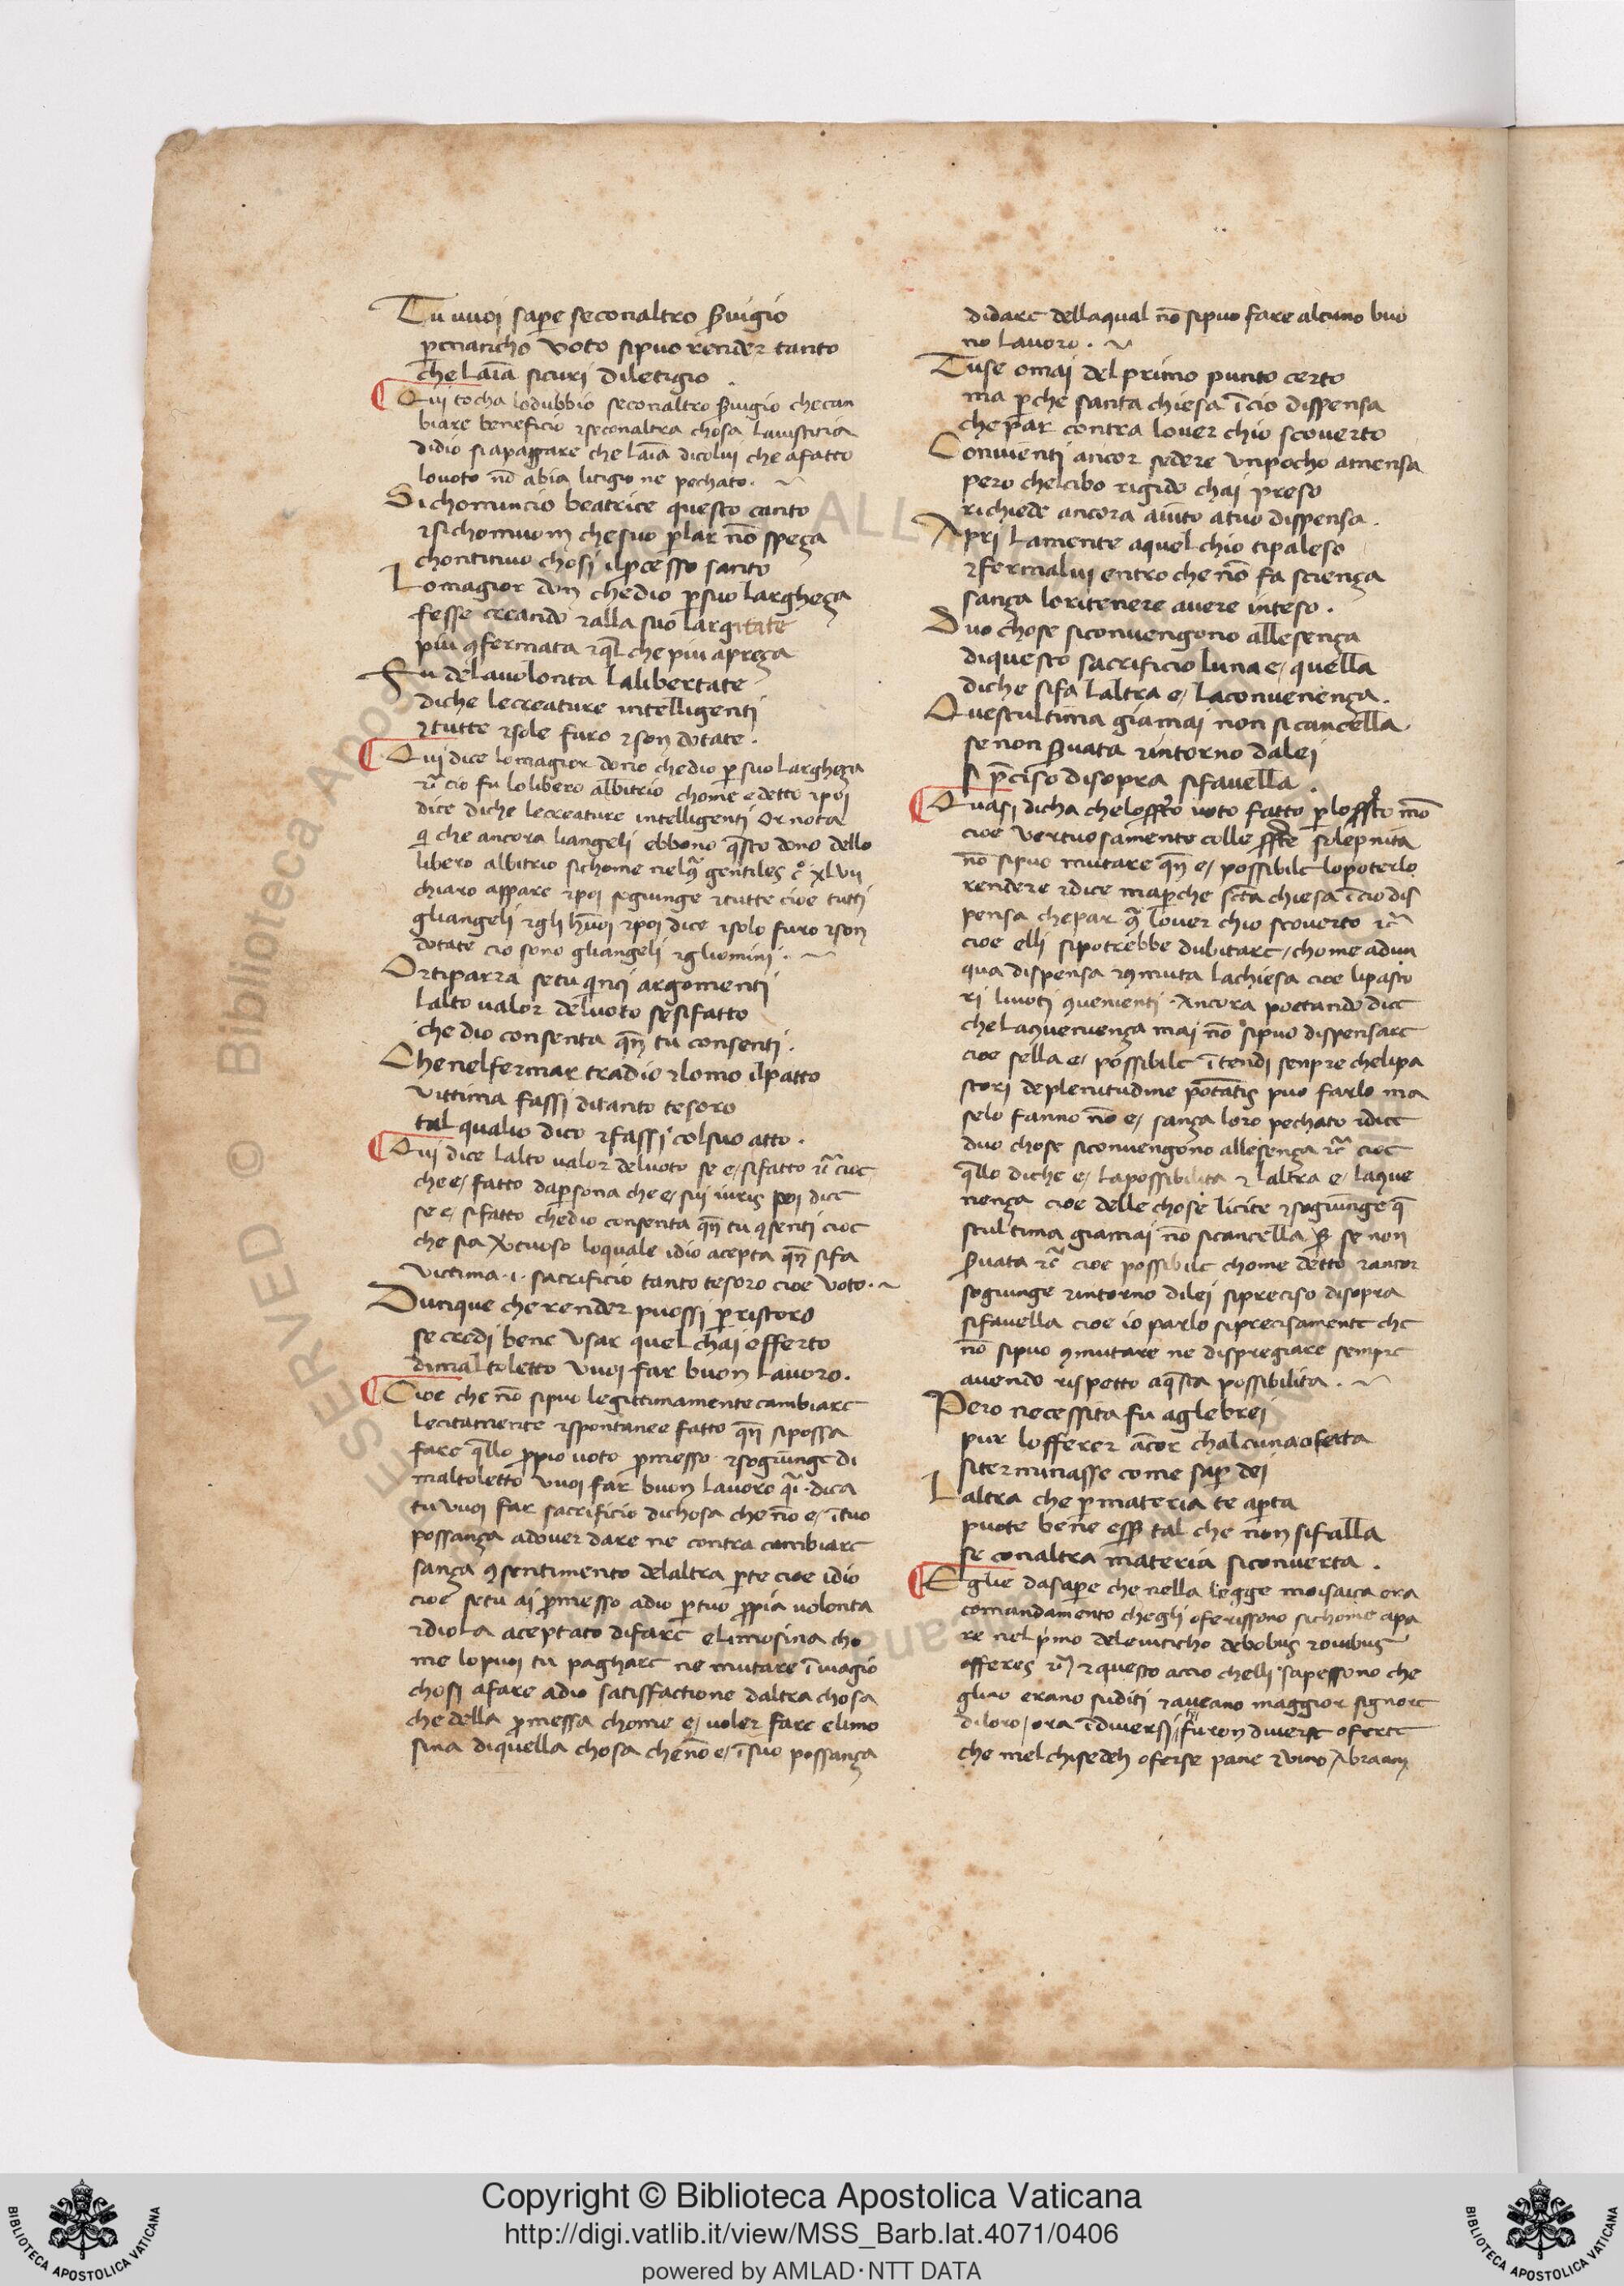 Tu vuoi sap̱e se con altro ß̱uigio
p̱ manacho voto si puo render tanto
che lai͞a sicuri di letigio .
Qui tocha lo dubbio se con altro ß̱uigio che can
biare beneficio ⁊ se con altra chosa la iustitia
didio si apaggare che lai͞a di colui che a fatto
lo voto no͞ abia litigio ne pechato .
Si chominciò beatrice questo canto
⁊ si chom uom che suo p̱lar no͞ speza
chontinuo chosi il p̱cesso santo
Lo magior don che dio p̱ suo largheza
fesse creando ⁊ alla suo largitate
piu ꝯfermata ⁊ ql̄ che piu apreza
Fu de la volonta la libertate
di che le creature intelligenti
⁊ tutte ⁊ sole furo ⁊ son dotate .
Qui dice lo magior dono che dio p̱ suo largheza
⁊c̄ cio fu lo libero albitrio chome e detto ⁊ poi
dice di che le creature intelligenti Or nota
q̄ che ancora li angeli ebbono q̄sto dono dello
libero albitrio si chome nel q̄ gentiles c° xlvii
chiaro appare ⁊ poi sogiunge ⁊ tutte cioe tutti
gli angeli ⁊ gli hūoi ⁊ poi dice ⁊ solo furo ⁊ son
dotate cio sono gli angeli ⁊ gli omini .
Or ti parra se tu quinci argomenti
lalto valor del voto se si fatto
che dio consenta qn̄ tu consenti .
Che nel fermar tra dio ⁊ lomo il patto
vittima fassi di tanto tesoro
tal qual io dico ⁊ fassi col suo atto .
Qui dice lalto valor del voto se e/ si fatto ⁊c̄ cioe
che e/ fatto da p̱sona che e/ sui iuris poi dice
se e/ si fatto che dio consenta qn̄ tu ꝯsenti cioe
che sia v̄tuoso lo quale idio acepta qn̄ si fa
victima .i. sacrificio tanto tesoro cioe voto .
Dunque che render puossi p̱ ristoro
se credi bene usar quel chai offerto
di mal toletto vuoi far buon lavoro .
Cioe che no͞ si puo legittimamente cambiare
lecitamente ⁊ spontanee fatto qn̄ si possa
fare q̄llo p̱pio voto p̱messo ⁊ sogiunge di
mal toletto vuoi far buon lavoro q̄i . dica
tu vuoi far sacrificio di chosa che no͞ e/ ī tuo
possanza ad over dare ne contra cambiare
sanza ꝯsentimento del altra p̱te cioe idio
cioe se tu ai p̱messo a dio p̱ tuo p̱pia volonta
⁊ dio la aceptato di fare elimosina cho
me lo puoi tu pagharc ne mutare ī uagio
chosi a fare a dio satisfactione daltra chosa
che della p̱messa chome e/ voler fare elimo
sina di quella chosa che no͞ e/ ī suo possanza
di dare della qual no͞ si puo fare alcuno buo
no lavoro .
Tu se omai del primo punto certo
ma p̱che santa chiesa ī cio dispensa
che par contra lo ver chio scoverto
Convienti ancor sedere un pocho a mensa
pero chel cibo rigido chai preso
richiede ancora aiuto a tuo dispensa .
Apri la mente a quel chio ti paleso
⁊ fermalui entro che no͞ fa scienza
sanza lo ritenere avere inteso .
Duo chose si convengono allesenza
di questo sacrificio luna e/ quella
di che si fa laltra e/ la convenenza .
Quest ultima gia mai non si cancella
se non ß̱uata ⁊ intorno da lei
si p̱ciso di sopra si favella .
Quasi dicha che lo ff̱to voto fatto p̱ lo ff̱to mo͞
cioe vertuosamente colle ff̱te solepnita
no͞ si puo mutare qn̄ e/ possibile lo poterlo
rendere ⁊ dice ma p̱che sc̄ta chiesa ī cio dis
pensa che par ꝯ lo ver chio scoverto ⁊c̄
cioe elli si potrebbe dubitare / chome adun
qua dispensa ⁊ ꝯmuta la chiesa cioe li pasto
ri li voti ꝯvenienti . Ancora poetando dice
che la ꝯvenenza mai no͞ si puo dispensare
cioe sella e/ possibile ītendi senpre che li pa
stori de plenitudine pot̄atis puo farlo ma
se lo fanno no͞ e/ sanza loro pechato ⁊ dice
duo chose si convengono allesenza ⁊c̄ cioe
q̄llo di che e/ la possibilita ⁊ laltra e/ la ꝯve
nenza cioe delle chose licite ⁊ sogiunge q̄
st ultima gia mai no͞ si cancella se non
ß̱uata ⁊c̄ cioe possibile chome detto ⁊ ancor
sogiunge ⁊ intorno di lei si preciso di sopra
si favella cioe io parlo si precisamente che
no͞ si puo ꝯmutare ne dispregiare sempre
avendo rispetto a q̄sta possibilita .
Pero necessita fu agl ebrei
pur lofferer ācor chalcuna oferta
si terminasse come sap̱ dei
Laltra che p̱ materia te ap̱ta
puote bene esse͞ tal che non si falla
se con altra materia si converta .
Egli e da sap̱e che nella legge moisaica era
comandamento che gli oferissono si chome apa
re nel p̄mo del eviticho de bobus ⁊ ovibus
offeres ⁊c̄ ⁊ questo accio chelli sapessono che
glino erano suditi ⁊ aveano maggior signore
di loro / ora ī diversi furon diverse oferte
che melchisedeh oferse pane ⁊ vino / Abraam
Copyright © Biblioteca Apostolica Vaticana
http://digi.vatlib.it/view/MSS_Barb.lat.4071/0406
powered by AMLAD·NTT DATA
BIBLIOTECA APOSTOLICA VATICANA
BIBLIOTECA APOSTOLICA VATICANA